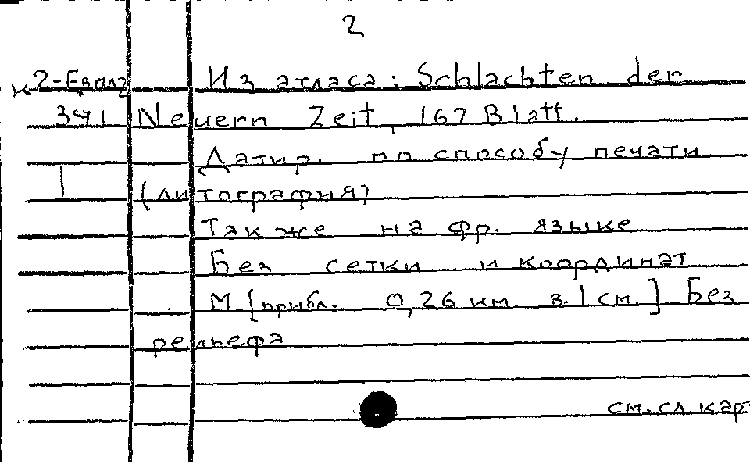 2
К 2-Евпл2 Из атласа: Schlachten der
341 Neuern Zeit, 167 Blatt.
Датир. по способу печати
1 (литография)
Также на фр. языке
Без сетки и координат
М [прибл. 0,26 км в 1 см.] Без
рельефа
см. сл. карт